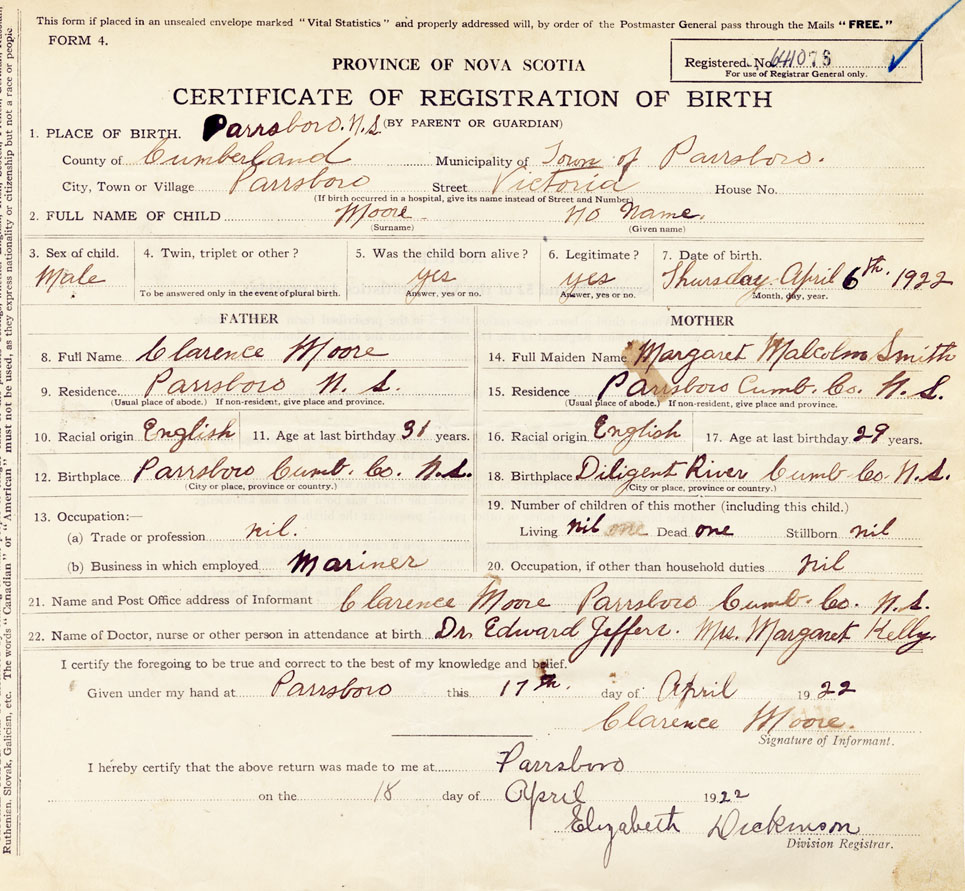 This form if placed in an unsealed envelope marked "Vital Statistics" and properly addressed will, by order of the Postmaster General pass through the Mails "FREE."
FORM 4.
PROVINCE OF NOVA SCOTIA
Registered. No.
For use of Registrar General only.
CERTIFICATE OF REGISTRATION OF BIRTH
(BY PARENT OR GUARDIAN)
1. PLACE OF BIRTH. Parrsboro. N. S.
County of Cumberland Municipality of Town of Parrsboro.
City, Town or Village Parrsboro Street Victoria House No.
(If birth occurred in a hospital, give its name instead of Street and Number)
2. FULL NAME OF CHILD Moore no Name.
(Surname) (Given name)
3. Sex of child. 4. Twin, triplet or other? 5. Was the child born alive? 6. Legitimate? 7. Date of birth.
Male yes yes Thursday April 6th. 1922
To be answered only in the event of plural birth. Answer, yes or no. Answer, yes or no. Month, day, year.
FATHER MOTHER
8. Full Name Clarence Moore 14. Full Maiden Name Margaret Malcolm Smith
9. Residence Parrsboro N. S. 15. Residence Parrsboro Cumb. Co. N. S.
(Usual place of abode.) If non-resident, give place and province. (Usual place of abode.) If non-resident, give place and province.
10. Racial origin English 11. Age at last birthday 31 years. 16. Racial origin English 17. Age at last birthday 29 years.
12. Birthplace Parrsboro Cumb. Co. N. S. 18. Birthplace Diligent River Cumb. Co. N. S.
(City or place, province or country.) (City or place, province or country.)
13. Occupation:— 19. Number of children of this mother (including this child.)
(a) Trade or profession nil. Living nil one Dead one Stillborn nil
(b) Business in which employed Mariner 20. Occupation, if other than household duties nil
21. Name and Post Office address of Informant Clarence Moore Parrsboro Cumb. Co. N. S.
22. Name of Doctor, nurse or other person in attendance at birth Dr. Edward Jeffers. Mrs. Margaret Kelly
I certify the foregoing to be true and correct to the best of my knowledge and belief.
Given under my hand at Parrsboro this 17th. day of April 1922
Clarence Moore.
Signature of Informant.
I hereby certify that the above return was made to me at Parrsboro
on the 18 day of April 1922
Elizabeth Dickinson
Division Registrar.
Ruthenian, Slovak, Galician, etc. The words "Canadian" or "American" must not be used, as they express nationality or citizenship but not a race or people